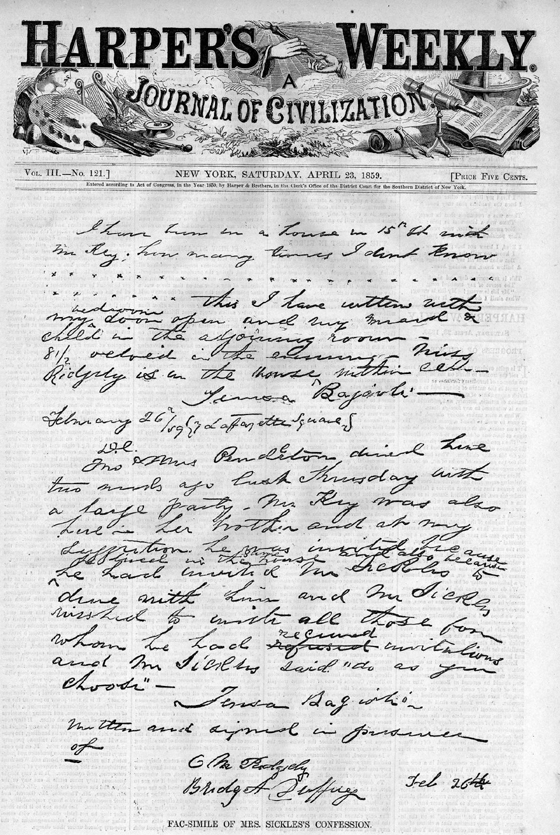 HARPER'S WEEKLY.
A
JOURNAL OF CIVILIZATION
VOL. III.—No. 121.] NEW YORK, SATURDAY, APRIL 23, 1859. [PRICE FIVE CENTS.
Entered according to Act of Congress, in the Year 1859, by Harper & Brothers, in the Clerk's Office of the District Court for the Southern District of New York.
I have been in a house in 15th St with
Mr Key. how many times I dont know
this I have written with
my bedroom door open and my maid &
child in the adjoining room—
8½ oclock in the evening— Miss
Ridgely is in the house within call—
Teresa Bagioli—
February 26th/59 Lafayette Square
Mrs Pendleton dined here
two weeks ago last Thursday with
a large party. Mr Key was also
here— her brother and at my
suggestion he was invited because
he lived in the house and also because
he had invited Mr Sickles to
dine with him and Mr Sickles
wished to invite all those from
whom he had received invitations
and Mr Sickles said "do as you
choose"—
Teresa Bagioli.
Written and signed in presence
of
C M Ridgely
Bridget Duffy Feb 26th
FAC-SIMILE OF MRS. SICKLES'S CONFESSION.